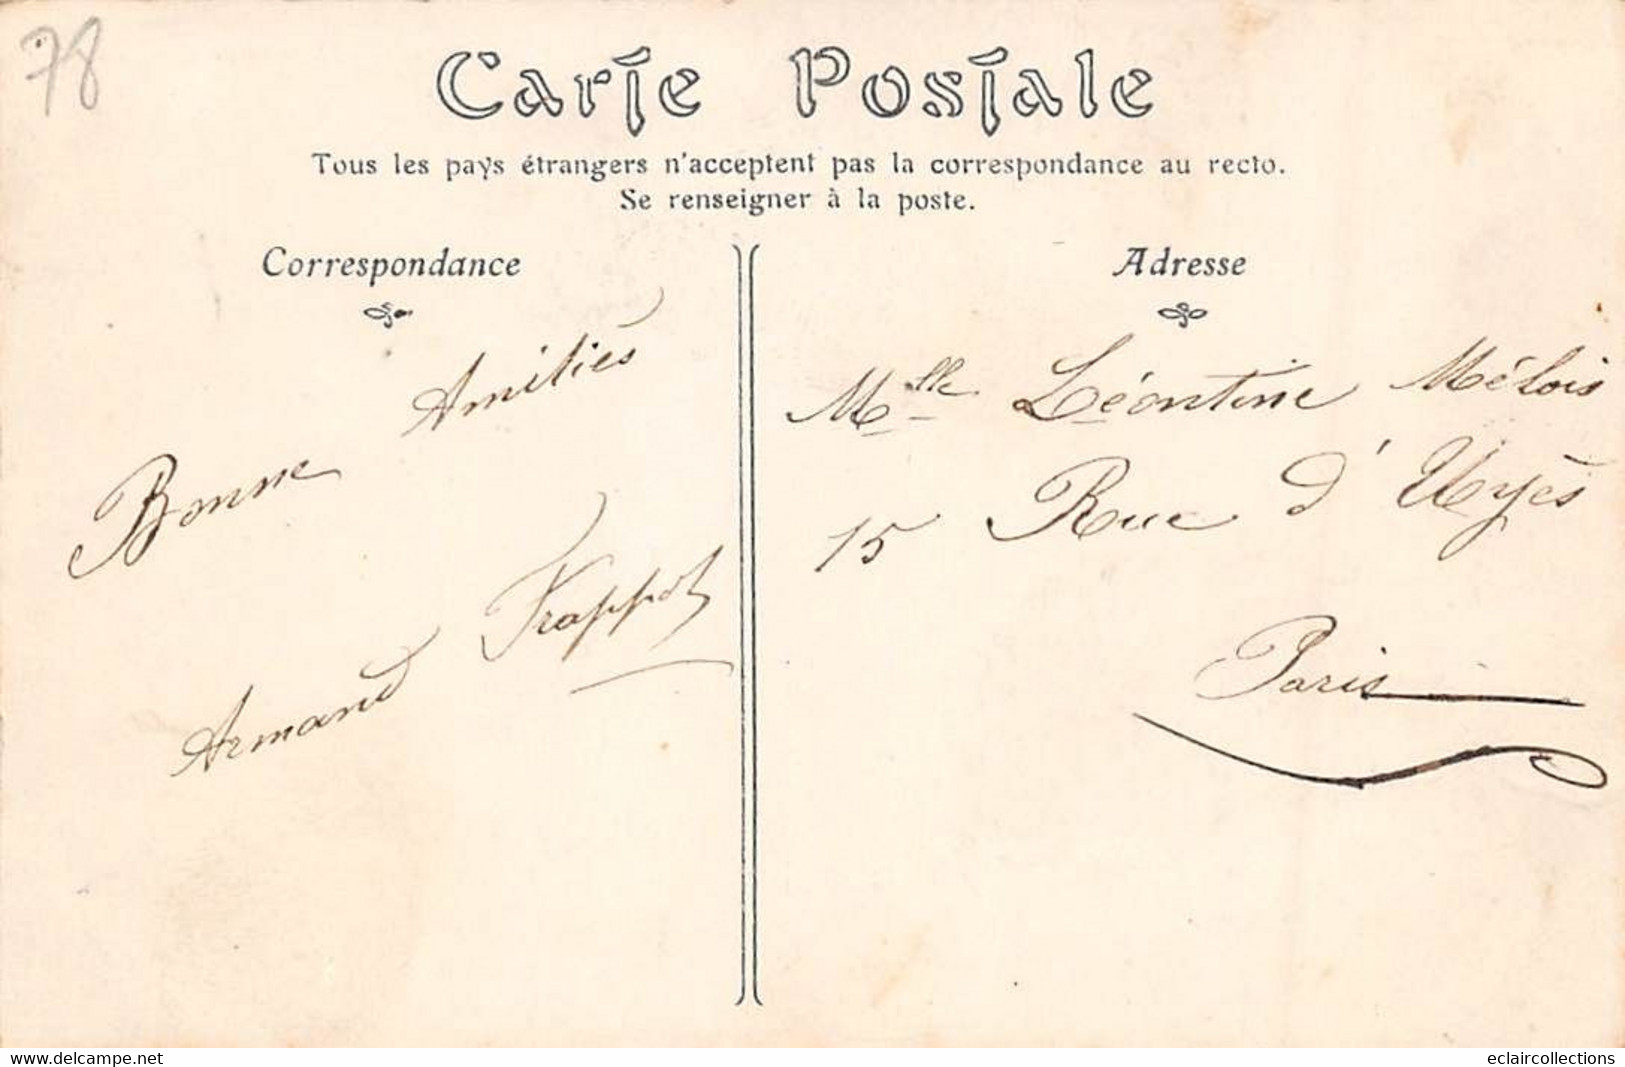 78
Carte Postale
Tous les pays étrangers n'acceptent pas la correspondance au recto.
Se renseigner à la poste.
Correspondance
Bonne Amitiés
Armand Frappot
Adresse
Mlle Léontine Mélois
15 Rue d'Uyès
Paris
www.delcampe.net
eclaircollections